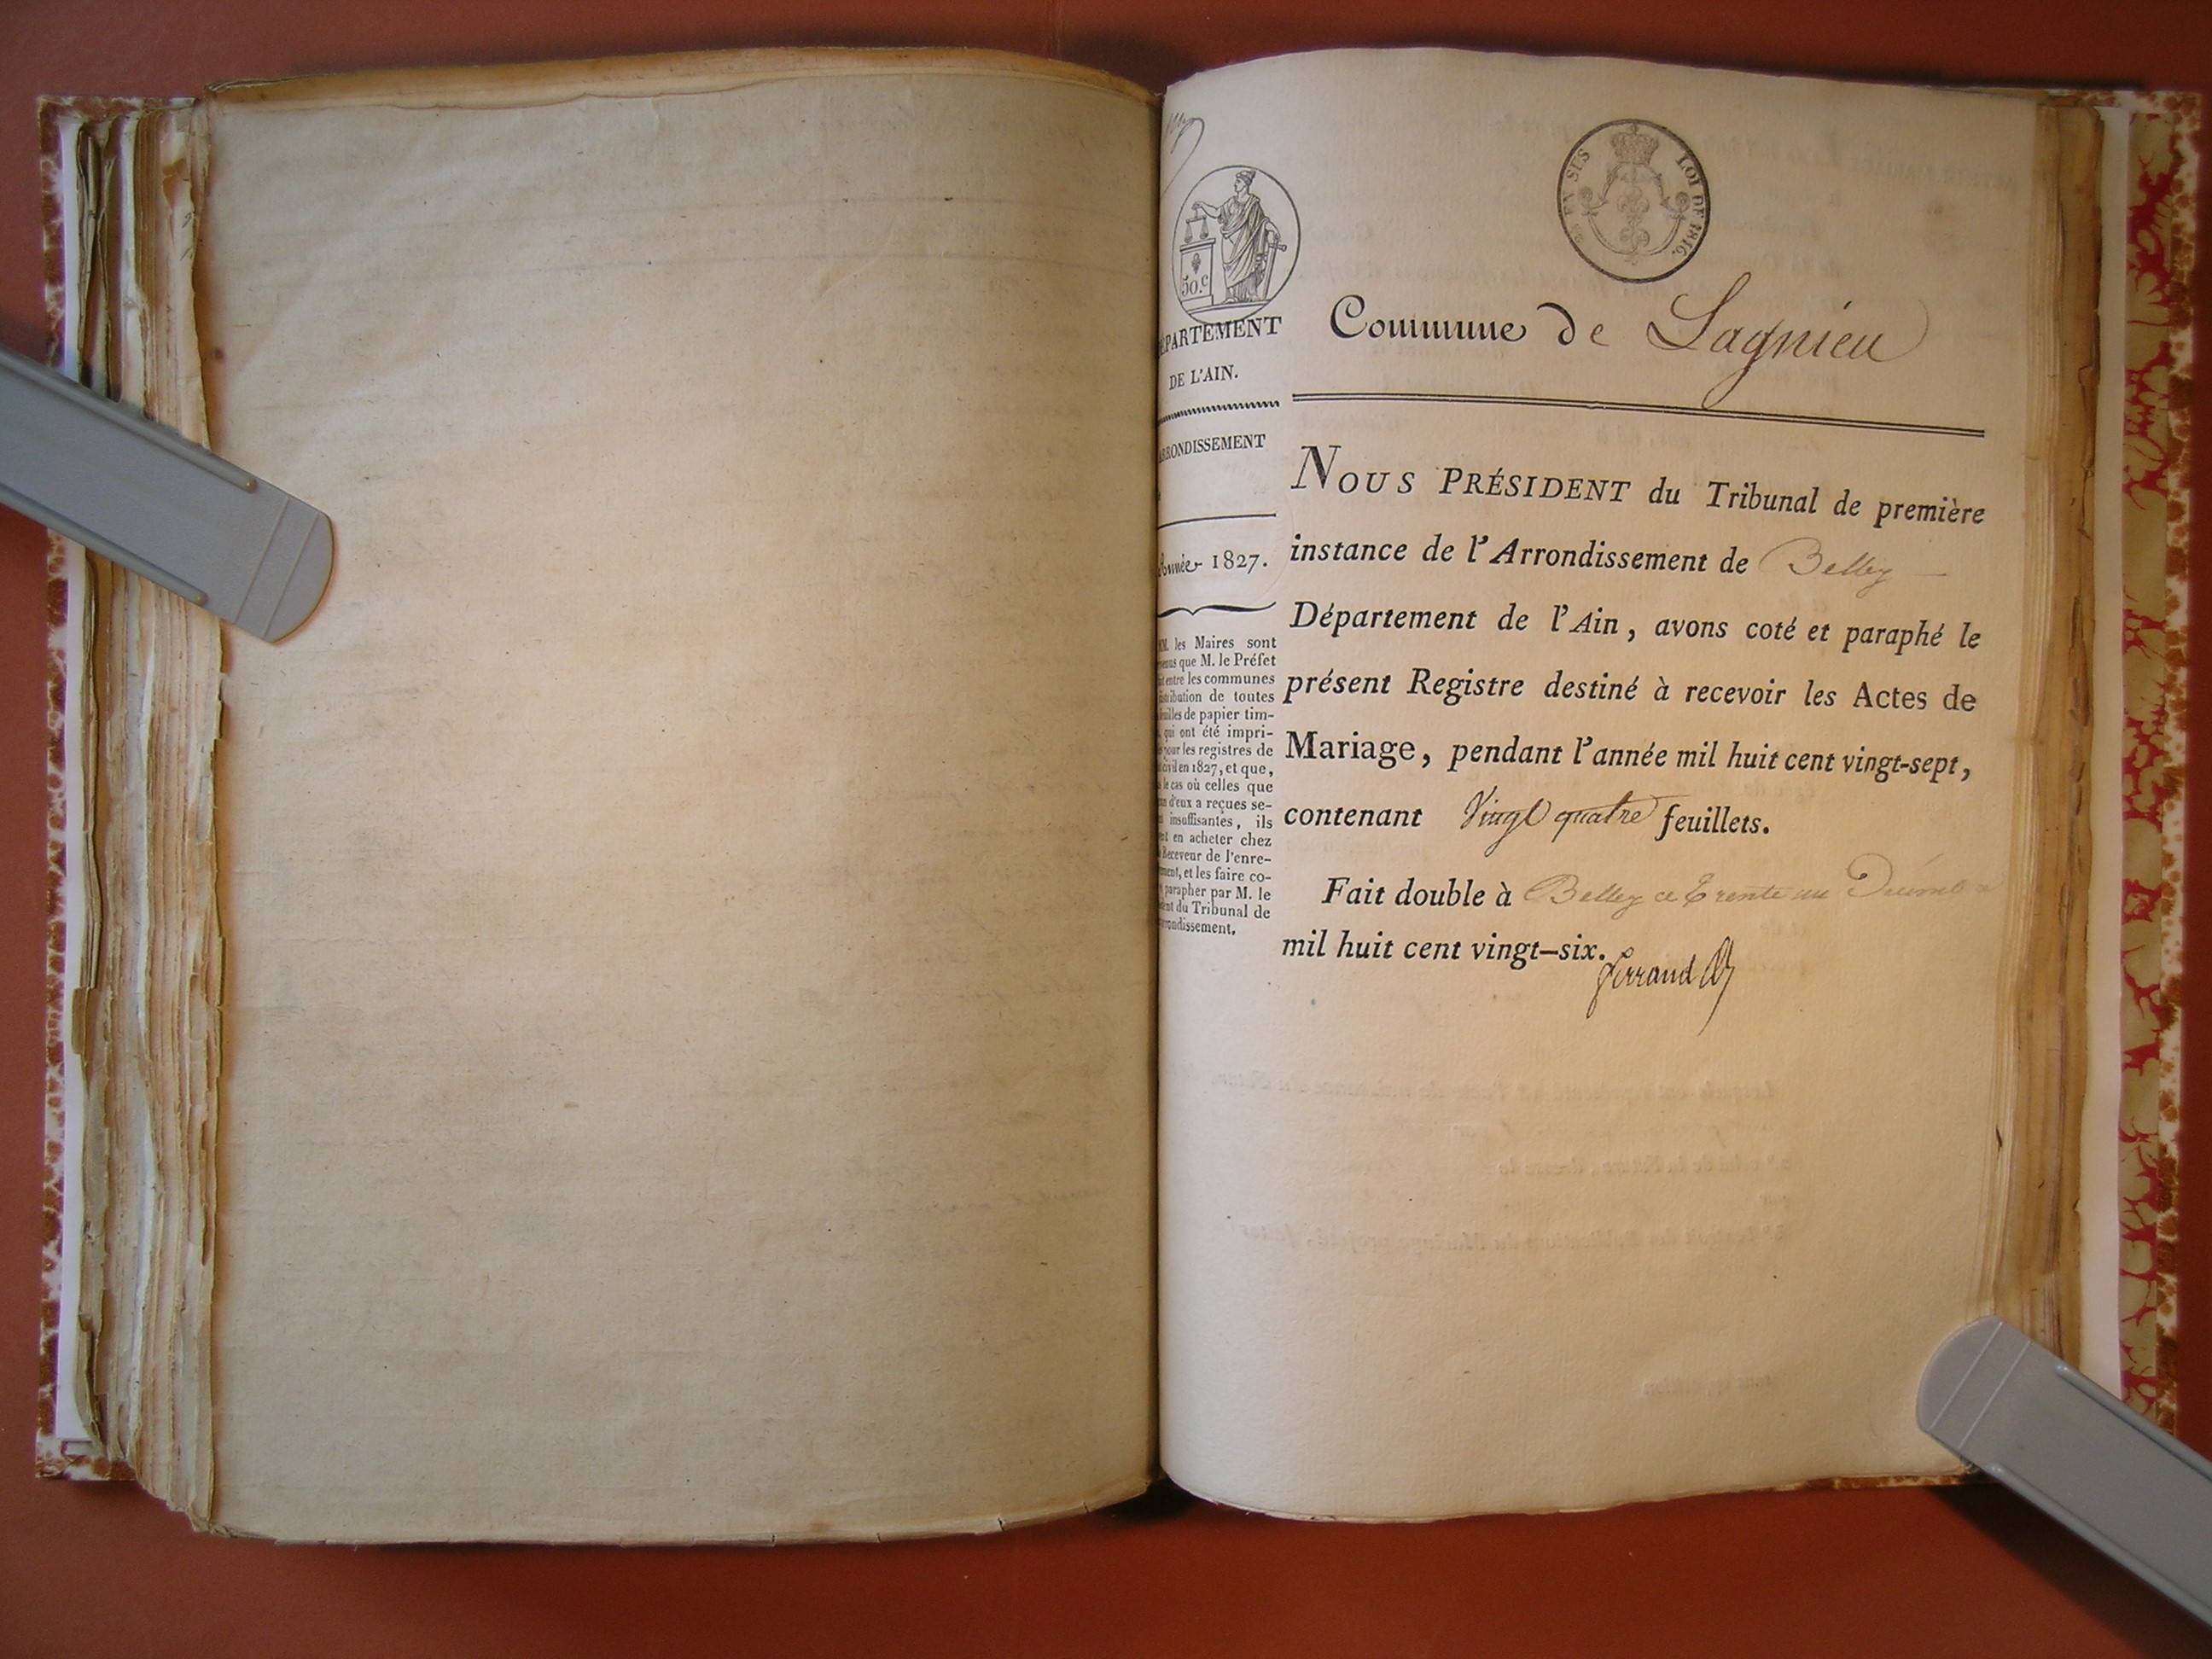 50.c
EN SUS
LOI DE 1816.
DÉPARTEMENT
DE L'AIN.
ARRONDISSEMENT
Année 1827.
MM. les Maires sont
que M. le Préfet
entre les communes
distribution de toutes
feuilles de papier tim-
qui ont été impri-
pour les registres de
civil en 1827, et que,
le cas où celles que
d'eux a reçues se-
insuffisantes, ils
en acheter chez
Receveur de l'enre-
et les faire co-
parapher par M. le
du Tribunal de
arrondissement.
Commune de Lagnieu
NOUS PRÉSIDENT du Tribunal de première
instance de l'Arrondissement de Belley
Département de l'Ain, avons coté et paraphé le
présent Registre destiné à recevoir les Actes de
Mariage, pendant l'année mil huit cent vingt-sept,
contenant Vingt quatre feuillets.
Fait double à Belley ce Trente un Décembre
mil huit cent vingt-six.